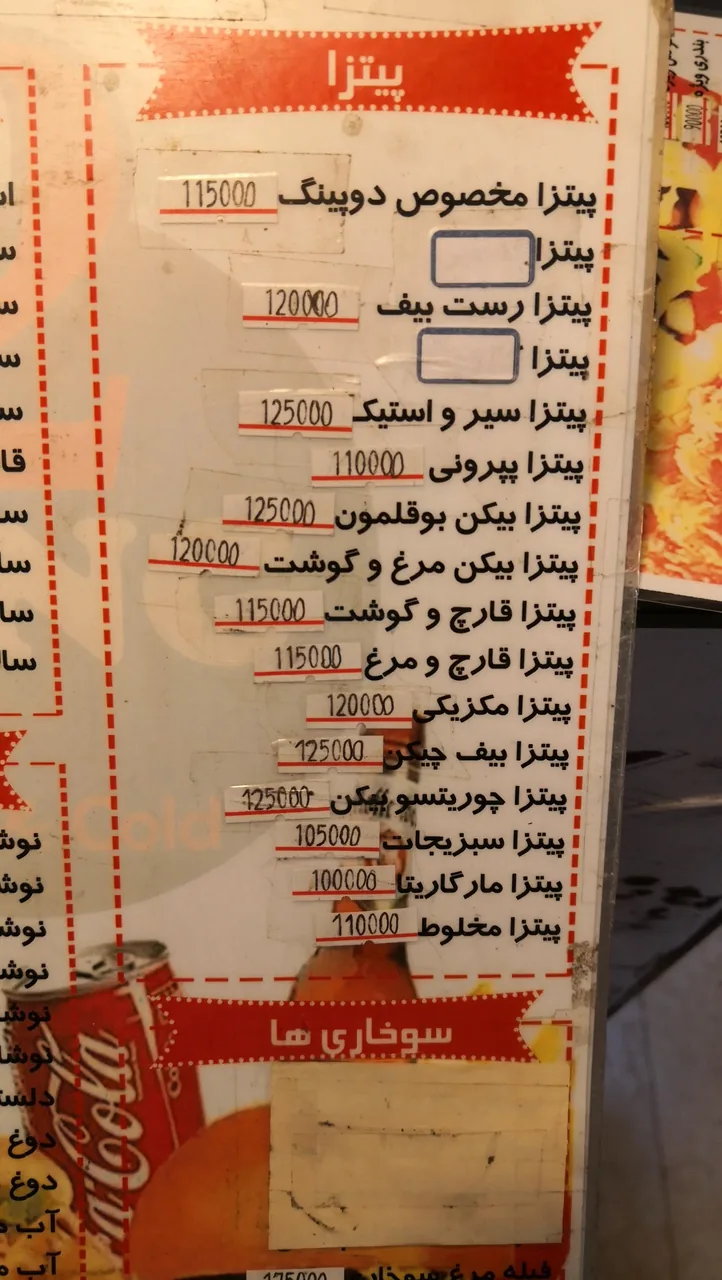 پیتزا
پیتزا مخصوص دوپینگ 115000
پیتزا
پیتزا رست بیف 120000
پیتزا
پیتزا سیر و استیک 125000
پیتزا پپرونی 110000
پیتزا بیکن بوقلمون 125000
پیتزا بیکن مرغ و گوشت 120000
پیتزا قارچ و گوشت 115000
پیتزا قارچ و مرغ 115000
پیتزا مکزیکی 120000
پیتزا بیف چیکن 125000
پیتزا چوریتسو بیکن 125000
پیتزا سبزیجات 105000
پیتزا مارگاریتا 100000
پیتزا مخلوط 110000
سوخاری ها
فیله مرغ سوخاری 175000
بندری ویژه 90000
Cold
Coca-Cola
دوغ
دوغ
آب
آب